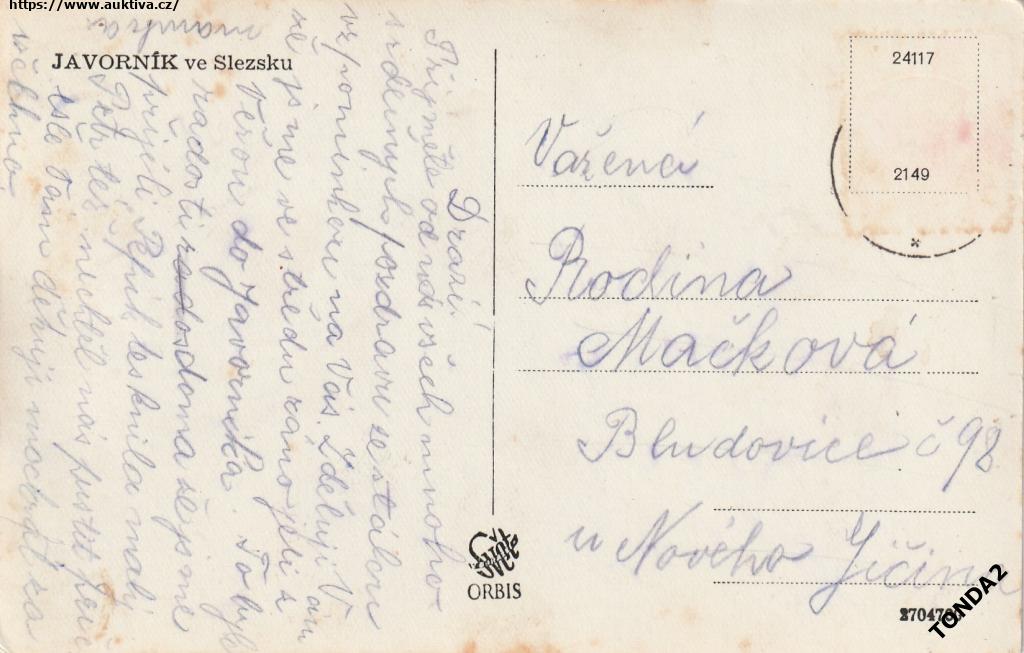 https://www.auktiva.cz/
JAVORNÍK ve Slezsku
Drazí!
Přijměte od nás všech mnoho
srdečných pozdravů se stálou
vzpomínkou na Vás. Zděluji Vám
že jsme ve středu ráno jeli s
Věrou do Javorníka. To bylo
radosti doma že jsme
přijeli, Pepík
Petr též nechtěl nás pustit
Vám děkuji mockrát za
všechno
mamka
Vážená
Rodina
Mačková
Bludovice č 98
u Nového Jičína
24117
2149
Svět
ORBIS
TONDA2